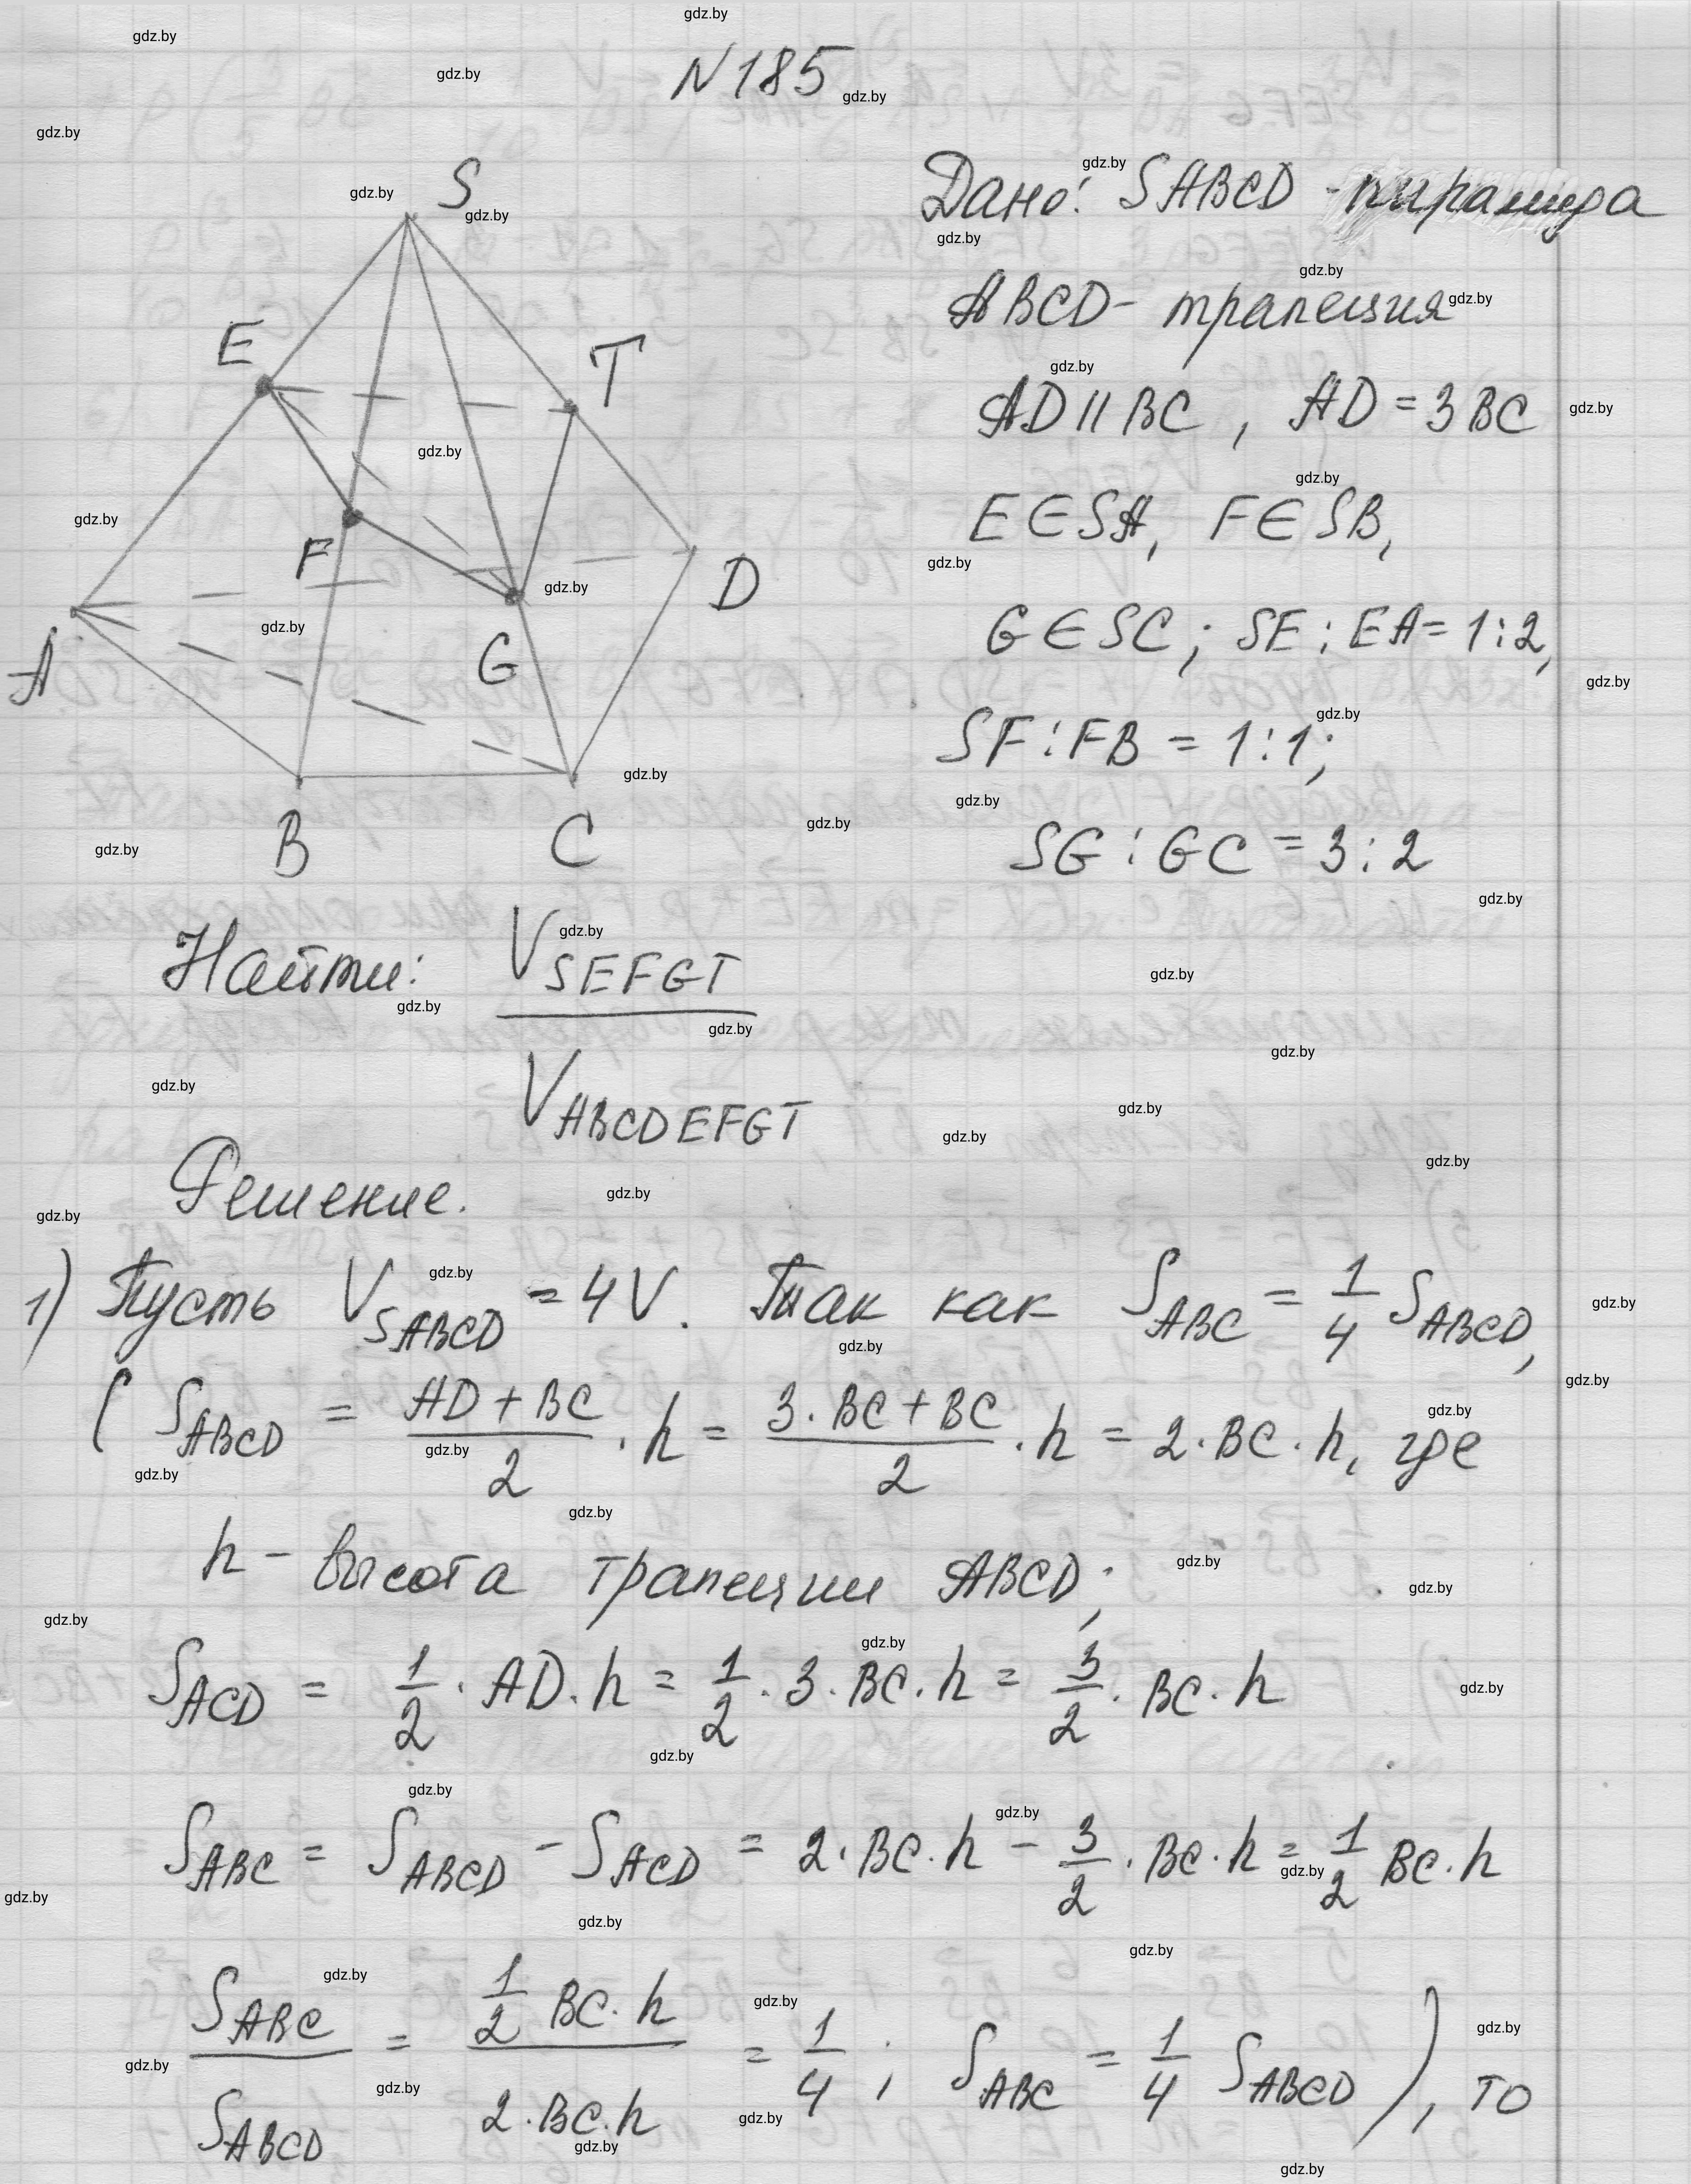 N 185
S
E
T
F
D
A
G
B
C
Дано: SABCD - пирамида
ABCD - трапеция
AD || BC, AD = 3 BC
E ∈ SA, F ∈ SB,
G ∈ SC; SE : EA = 1 : 2,
SF : FB = 1 : 1;
SG : GC = 3 : 2
Найти: V_SEFGT / V_ABCDEFGT
Решение.
1) Пусть V_SABCD = 4V. Так как S_ABC = 1/4 S_ABCD,
( S_ABCD = (AD + BC)/2 · h = (3 · BC + BC)/2 · h = 2 · BC · h, где
h - высота трапеции ABCD;
S_ACD = 1/2 · AD · h = 1/2 · 3 · BC · h = 3/2 · BC · h
S_ABC = S_ABCD - S_ACD = 2 · BC · h - 3/2 · BC · h = 1/2 BC · h
S_ABC / S_ABCD = (1/2 BC · h) / (2 · BC · h) = 1/4 ; S_ABC = 1/4 S_ABCD ), то
gdz.by